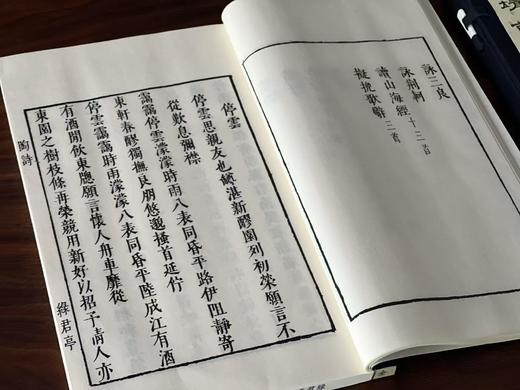 詠三良
詠荆軻
讀山海經十三首
擬挽歌辭三首
停雲
停雲思親友也罇湛新醪園列初榮願言不
從歎息彌襟
靄靄停雲濛濛時雨八表同昏平路伊阻靜寄
東軒春醪獨撫良朋悠邈搔首延佇
停雲靄靄時雨濛濛八表同昏平陸成江有酒
有酒閒飲東牕願言懷人舟車靡從
東園之樹枝條再榮競用新好以招予情人亦
陶詩
綠君亭